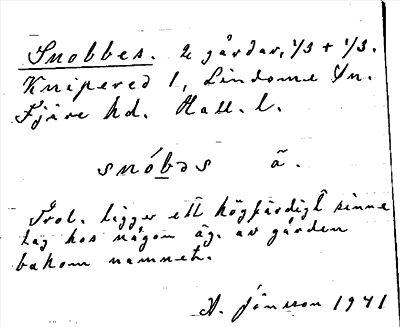 Snobbes. 2 gårdar, 1/3 + 1/3.
Knipered 1, Lindome Sn.
Fjäre hd. Hall. l.
snóbəs ã.
Trol. ligger ett högfärdigt sinne
lag hos någon äg. av gården
bakom namnet.
A. Jönsson 1941